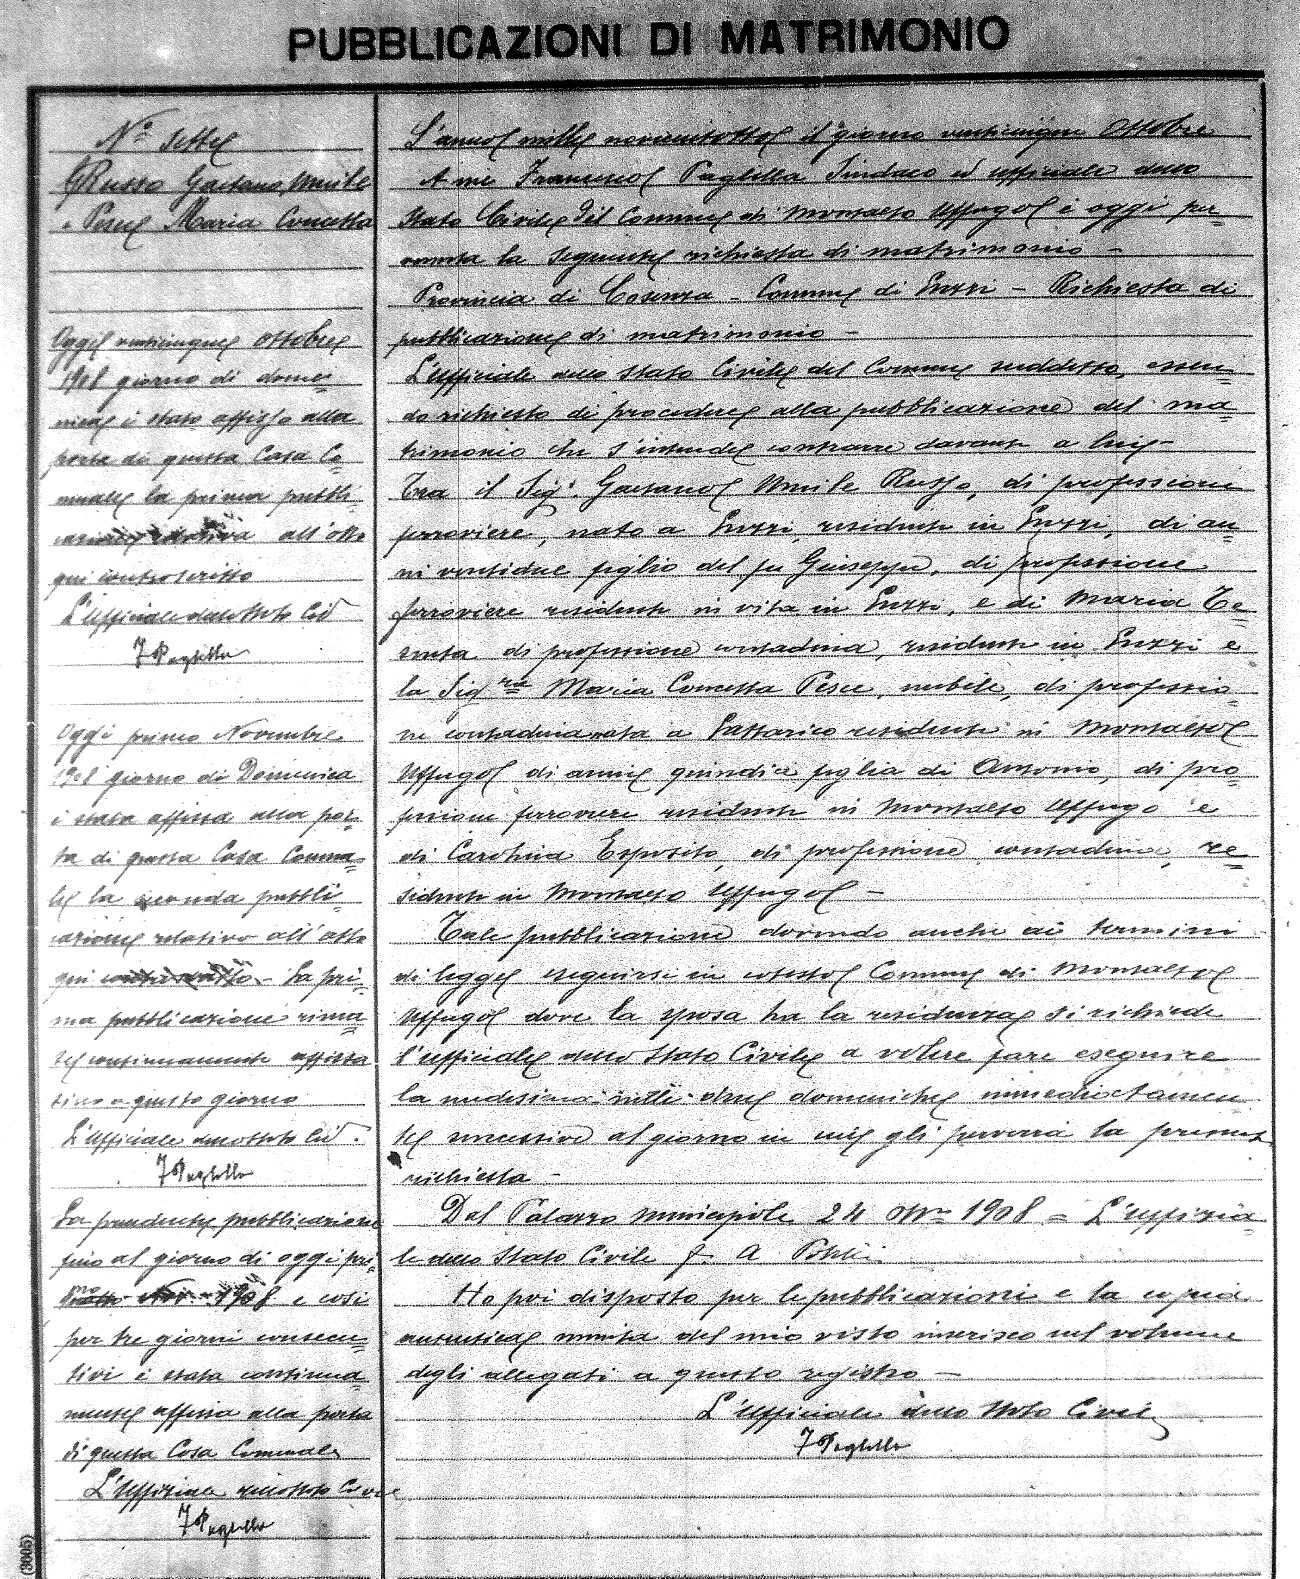 PUBBLICAZIONI DI MATRIMONIO
N° Sette
Russo Gaetano Umile
e Pesce Maria Concetta
Oggi venticinque Ottobre
1908 giorno di dome=
nica è stata affissa alla
porta di questa Casa Co=
munale la prima pubbli=
cazione relativa all'atto
qui controscritto
L'Ufficiale dello Stato Civ
F Paglilla
Oggi primo Novembre
1908 giorno di Domenica
è stata affissa alla por=
ta di questa Casa Comuna=
le la seconda pubbli=
cazione relativo all'atto
qui controscritto - La pri=
ma pubblicazione rima=
se continuamente affissa
sino a questo giorno
L'Ufficiale dello Stato Civ.
F Paglilla
La precedente pubblicazione
fino al giorno di oggi
1908 e così
per tre giorni consecu=
tivi è stata continua=
mente affissa alla porta
di questa Casa Comunale
L'Uffiziale dello Stato Civile
F Paglilla
L'anno mille novecentotto il giorno venticinque Ottobre
A me Francesco Paglilla Sindaco ed ufficiale dello
Stato Civile del Comune di Montalto Uffugo è oggi per=
venuta la seguente richiesta di matrimonio -
Provincia di Cosenza - Comune di Luzzi - Richiesta di
pubblicazione di matrimonio -
L'Ufficiale dello Stato Civile del Comune suddetto, essen=
do richiesto di procedere alla pubblicazione del ma=
trimonio che s'intende contrarre davanti a lui -
Tra il Sig. Gaetano Umile Russo, di professione
ferroviere, nato a Luzzi, residente in Luzzi, di an=
ni ventidue figlio del fu Giuseppe, di professione
ferroviere residente in vita in Luzzi, e di Maria Te=
senta di professione contadina, residente in Luzzi e
la Sig.ra Maria Concetta Pesce, nubile, di professio=
ne contadina nata a Lattarico residente in Montalto
Uffugo di anni quindici figlia di Antonio, di pro=
fessione ferroviere residente in Montalto Uffugo e
di Carolina Esposito, di professione contadina, re=
sidente in Montalto Uffugo -
Tale pubblicazione dovendo anche ai termini
di legge eseguirsi in cotesto Comune di Montalto
Uffugo dove la sposa ha la residenza si richiede
l'ufficiale dello Stato Civile a volere fare eseguire
la medesima nelle due domeniche immediatamen=
te successive al giorno in cui gli perverrà la presente
richiesta -
Dal Palazzo Municipale 24 Ott.re 1908 = L'Uffizia=
le dello Stato Civile f. A
Ho poi disposto per le pubblicazioni e la copia
autentica munita del mio visto inserisco nel volume
degli allegati a questo registro -
L'Ufficiale dello Stato Civile
F Paglilla
(3005)